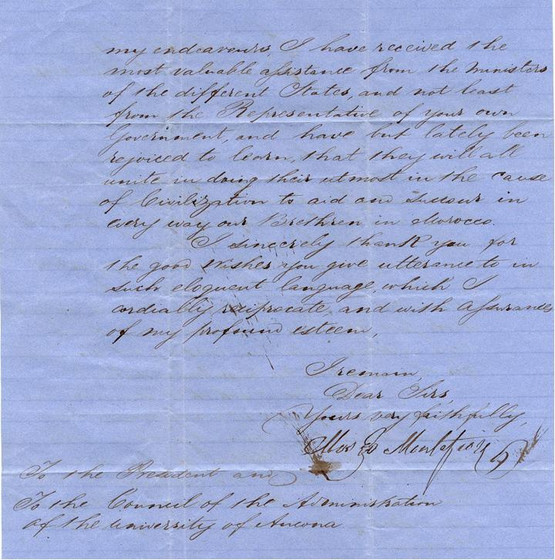 my endeavours I have received the
most valuable assistance from the ministers
of the different States, and not least
from the Representative of your own
Government, and have but lately been
rejoiced to learn, that they will all
unite in doing their utmost in the cause
of Civilization to aid and succour in
every way our Brethren in Morocco.
I sincerely thank you for
the good wishes you give utterance to in
such eloquent language, which I
cordially reciprocate, and with assurances
of my profound esteem,
I remain,
Dear Sirs,
Yours very faithfully,
Moses Montefiore
To the President and
To the Council of the Administration
of the University of Ancona